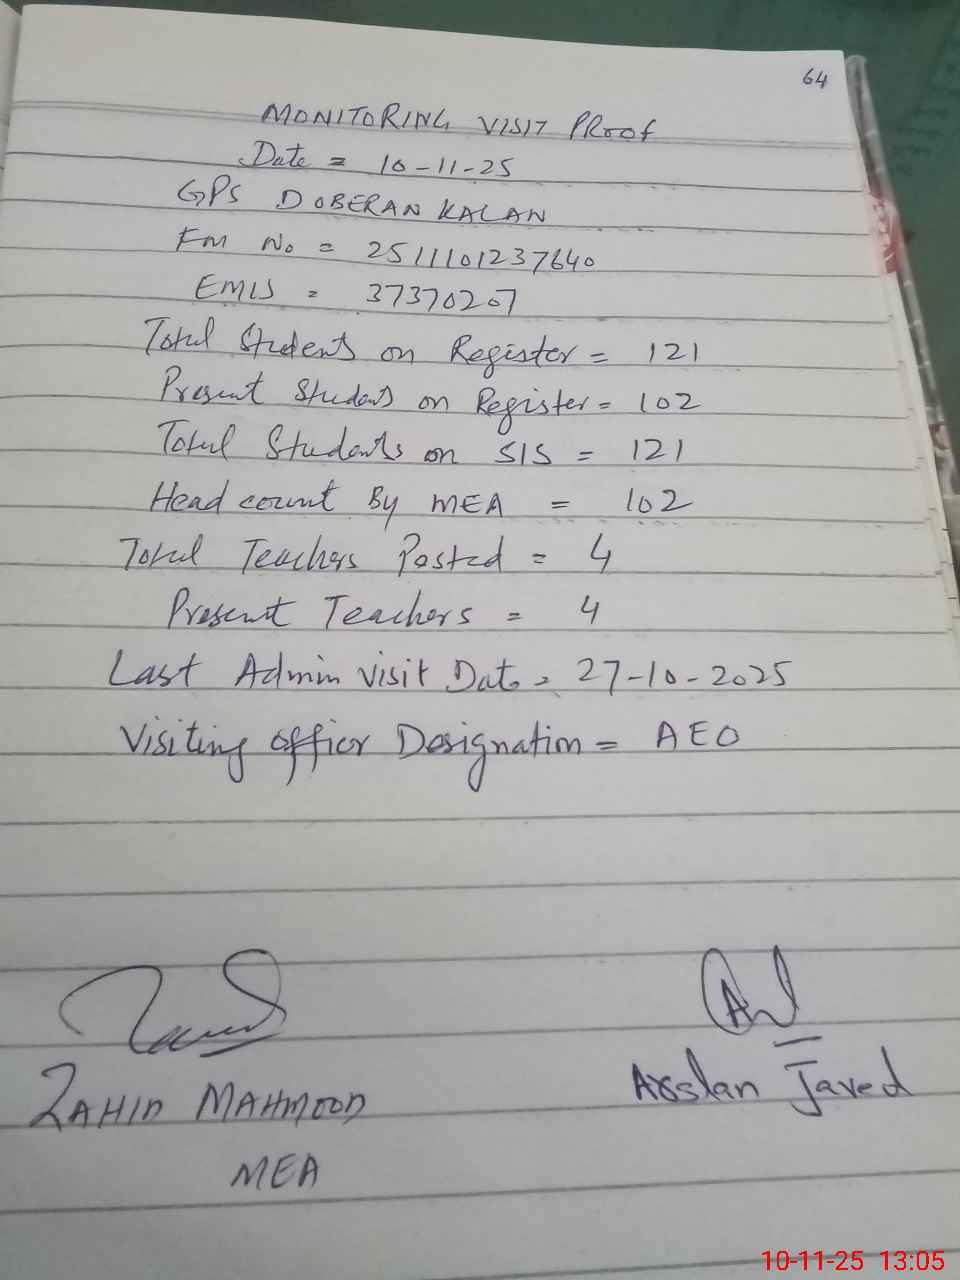 64
MONITORING VISIT PRoof
Date = 10-11-25
GPS DOBERAN KALAN
Fm No = 2511101237640
EMIS = 37370207
Total Students on Register = 121
Present Students on Register = 102
Total Students on SIS = 121
Head count By MEA = 102
Total Teachers Posted = 4
Present Teachers = 4
Last Admin visit Date = 27-10-2025
Visiting officer Designation = AEO
ZAHID MAHMOOD
Arslan Javed
MEA
10-11-25 13:05